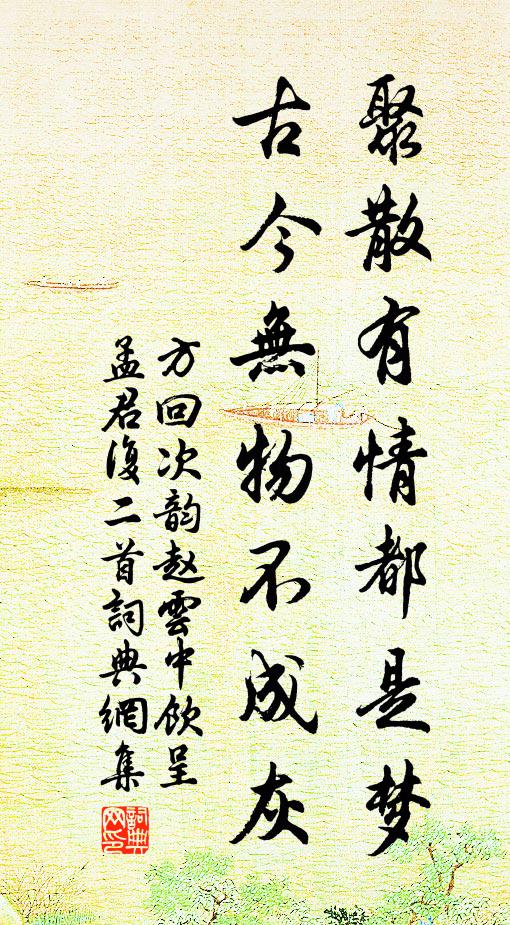 聚散有情都是梦
古今無物不成灰
方回次韵赵雲中飲呈
孟君復二首詞典網集
詞典
网印